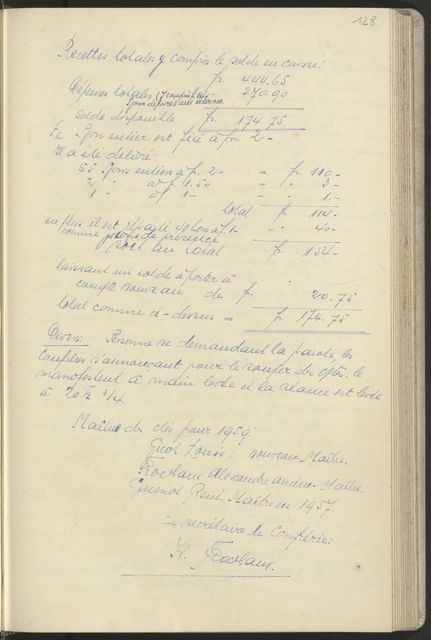 128
Recettes totales y compris le solde en caisse:
fr. 444.65
Dépenses totales (y compris 270.90
Jons délivrés aux
Solde disponible fr. 174.75
Le Jons entier est fixé à fr. 2-.
Il a été délivré
55 Jons entiers à fr. 2- = fr. 110-
2 " à fr. 1.50 = " 3-
1 " à fr. 1- = " 1.-
total fr. 114-
en plus il est réparti 40 bons à fr. 1- = " 40-
comme jetons de présence
soit au total fr. 154-
laissant un solde à porter à
compte nouveau de fr. 20.75
total comme ci-dessus = fr. 174.75
Divers: Personne ne demandant la parole, les
Confrères s'annonçant pour le souper des Clefs, le
manifestent à main levée et la séance est levée
à 20 h 3/4
Maître des clés pour 1959:
Louis: nouveau Maître.
Rochaux Alexandre ancien Maître.
René Maître en 1957.
Le secrétaire de Confrérie:
H. Rochaux.